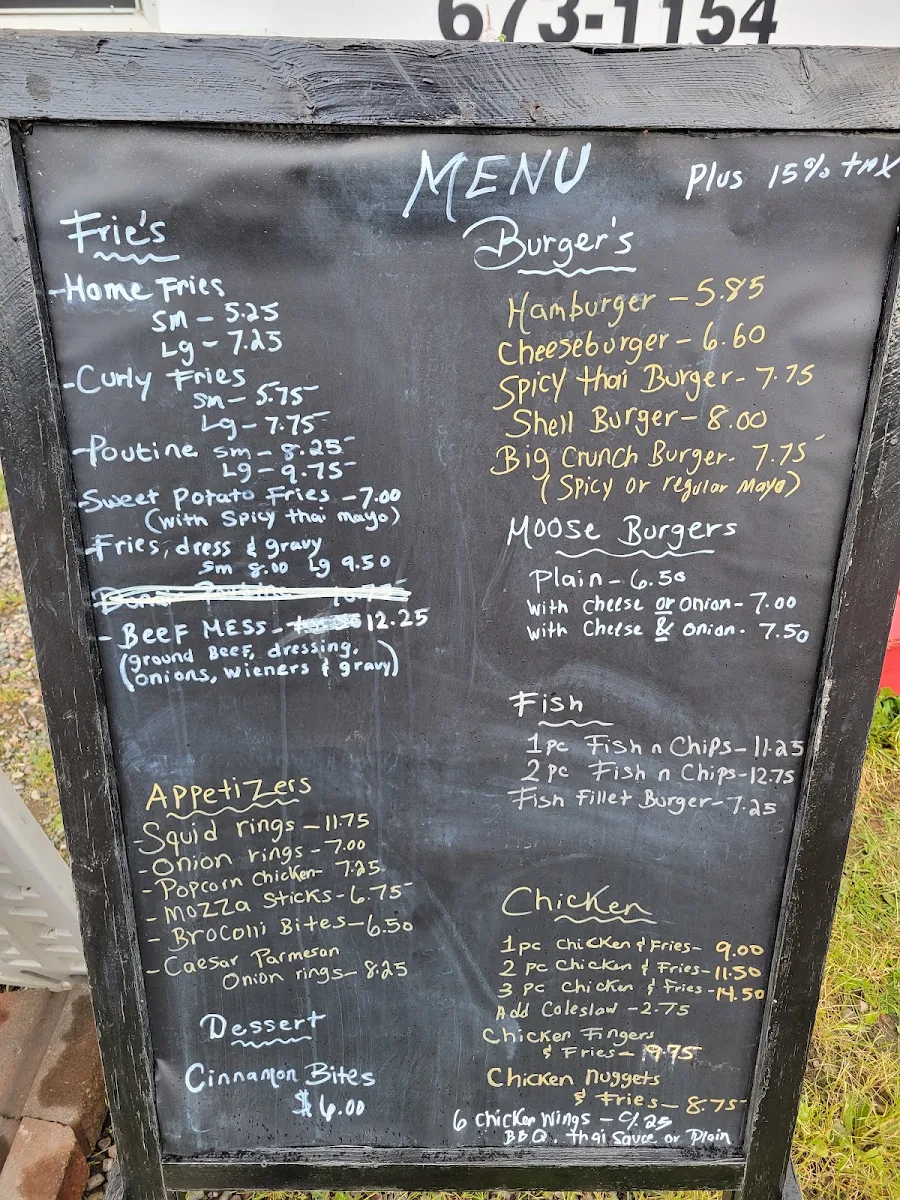 673-1154
MENU
Plus 15% tax
Frie's
-Home Fries
Sm - 5.25
Lg - 7.25
-Curly Fries
Sm - 5.75
Lg - 7.75
-Poutine Sm - 8.25
Lg - 9.75
-Sweet Potato Fries - 7.00
(with Spicy thai mayo)
-Fries, dress & gravy
Sm 8.00 Lg 9.50
- BEEF MESS - 12.25
(ground BEEF, dressing,
onions, wieners & gravy)
Appetizers
-Squid rings - 11.75
-Onion rings - 7.00
-Popcorn Chicken- 7.25
- Mozza Sticks - 6.75
- Brocolli Bites - 6.50
- Caesar Parmesan
Onion rings - 8.25
Dessert
Cinnamon Bites
$6.00
Burger's
Hamburger - 5.85
Cheeseburger - 6.60
Spicy thai Burger - 7.75
Shell Burger - 8.00
Big Crunch Burger. 7.75
(Spicy or regular Mayo)
Moose Burgers
Plain - 6.50
with cheese or onion - 7.00
with Cheese & onion. 7.50
Fish
1pc Fish n Chips - 11.25
2 pc Fish n Chips - 12.75
Fish Fillet Burger - 7.25
Chicken
1pc Chicken & Fries - 9.00
2 pc Chicken & Fries - 11.50
3 pc Chicken & Fries - 14.50
Add Coleslaw - 2.75
Chicken Fingers
& Fries -
Chicken nuggets
& Fries - 8.75
6 Chicken Wings - 9.25
BBQ, thai Sauce or Plain